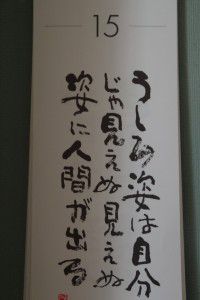 15
うしろ姿は自分
じゃ見えぬ見えぬ
姿に人間が出る